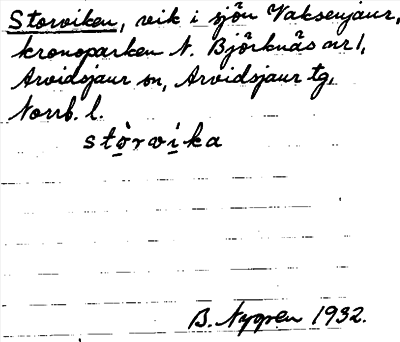 Storviken, vik i sjön Vaksenjaur,
kronoparken N. Björknäs nr 1,
Arvidsjaur sn, Arvidsjaur tg,
Norrb. l.
stòrvika
B. Nygren 1932.